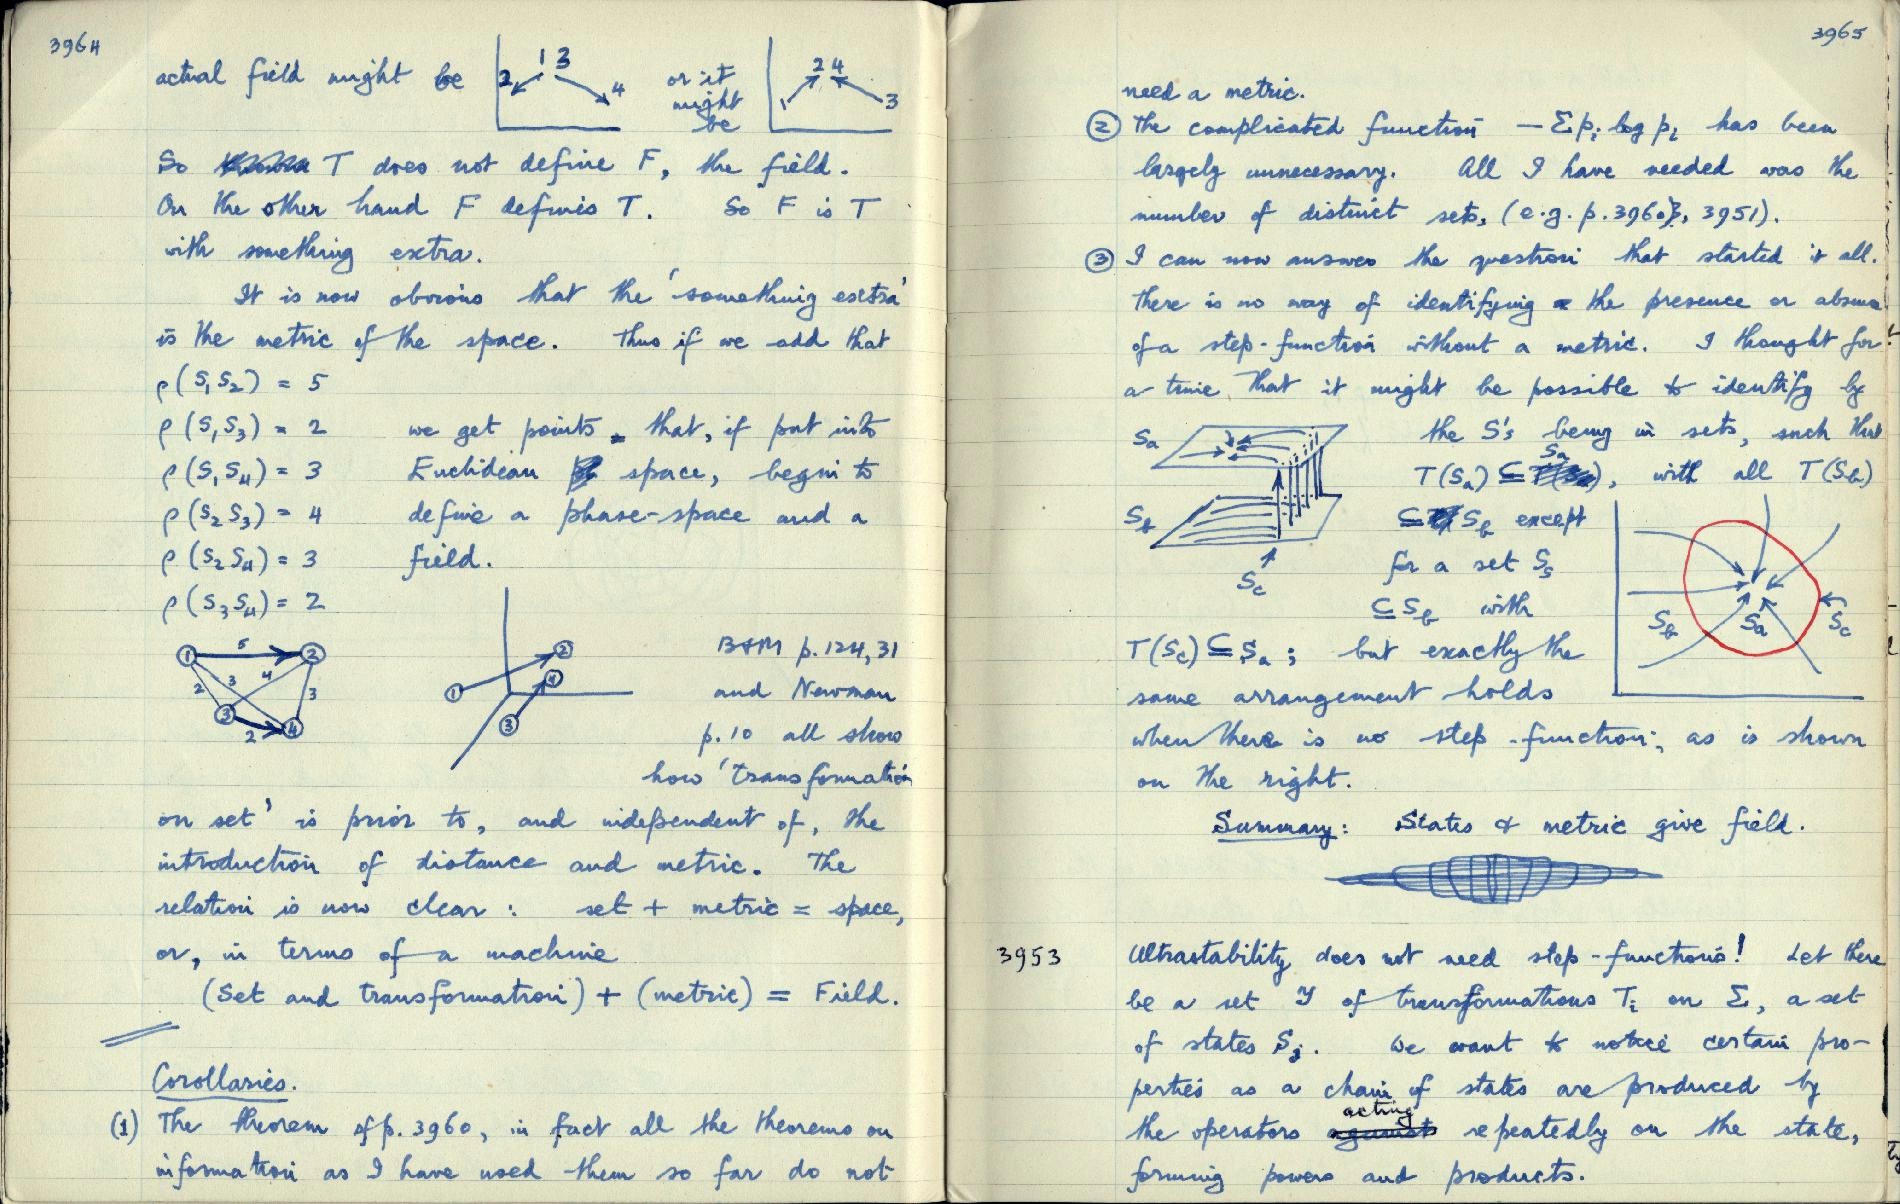 3964
actual field might be
1 3
2
4
or it
might
be
2 4
1
3
So T does not define F, the field.
On the other hand F defines T. So F is T
with something extra.
It is now obvious that the 'something extra'
is the metric of the space. Thus if we add that
ρ(S₁S₂) = 5
ρ(S₁S₃) = 2 we get points that, if put into
ρ(S₁S₄) = 3 Euclidean space, begin to
ρ(S₂S₃) = 4 define a phase-space and a
ρ(S₂S₄) = 3 field.
ρ(S₃S₄) = 2
1 5 2
2 3 4 3
3 2 4
1 2
3 4
B&M p.124,31
and Newman
p.10 all show
how 'transformation
on set' is prior to, and independent of, the
introduction of distance and metric. The
relation is now clear: set + metric = space,
or, in terms of a machine
(Set and transformation) + (metric) = Field.
Corollaries.
(1) The theorem of p. 3960, in fact all the theorems on
information as I have used them so far do not
3965
need a metric.
② The complicated function − Σ pᵢ log pᵢ has been
largely unnecessary. All I have needed was the
number of distinct sets, (e.g. p. 3960, 3951).
③ I can now answer the question that started it all.
There is no way of identifying the presence or absence
of a step-function without a metric. I thought for
a time that it might be possible to identify by
Sa the S's being in sets, such that
T(Sa) ⊆ Sa, with all T(Sb)
Sb ⊆ Sb except
for a set Ss
Sc
⊆ Sb with
Sb Sa Sc
T(Sc) ⊆ Sa; but exactly the
same arrangement holds
when there is no step-function, as is shown
on the right.
Summary: States & metric give field.
3953 Ultrastability does not need step-functions! Let there
be a set of transformations Tᵢ on Σ, a set
of states Sⱼ. We want to notice certain pro-
perties as a chain of states are produced by
the operators acting repeatedly on the state,
forming powers and products.